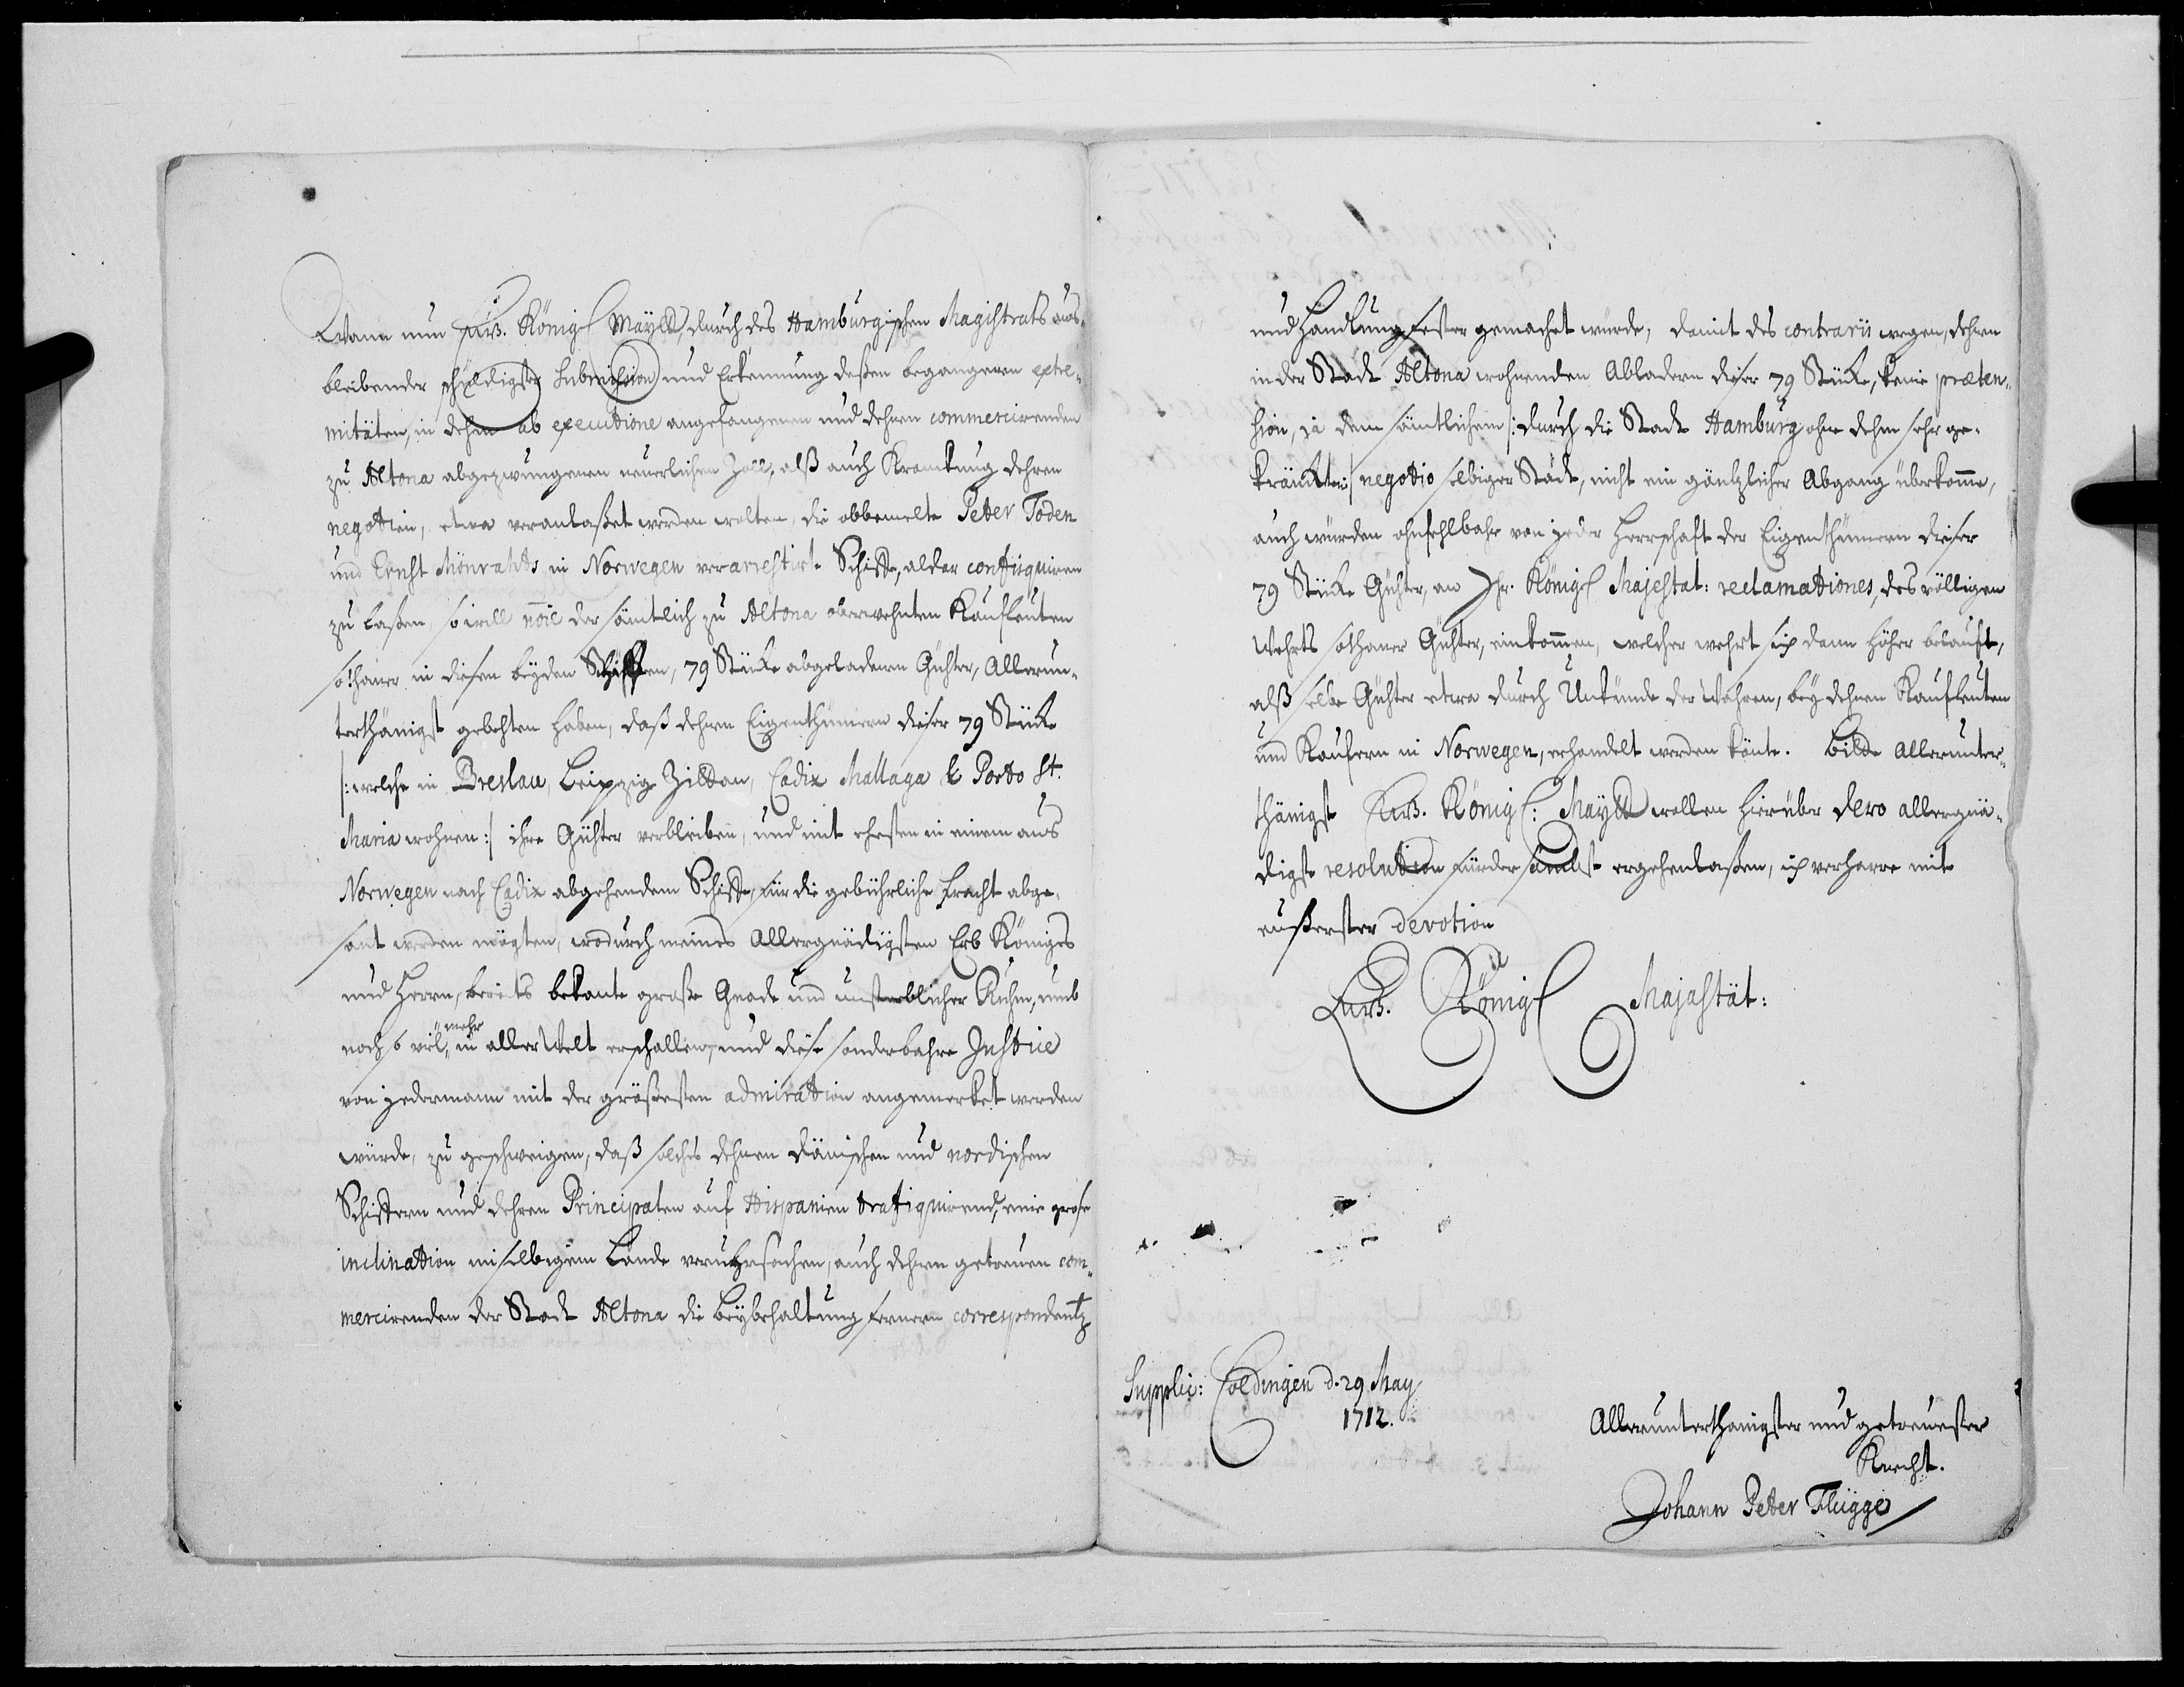 Wann nun Eurß. Königl Maytt, durch des Hamburgischen Magistrats aus-
bleibender schuldigster Submission und Erkennung deßen begangenen extre-
mitäten, in dehm ab executione angefangenen und dehren commercirenden
zu Altona abgezwungenen neuerlichen Zoll, alß auch Kranckung dehren
negotien, etwa veranlaßet werden wolten, die obbemelte Peter Toden
und Ernst Mönrahts in Norwegen verarrestirte Schiffe, aldar confisquiren
zu laßen, so will noïe der sämtlich zu Altona oberwehnten Kaufleuten
sothaner in diesen beyden Schiffen, 79 Stücke abgeladenen Gühter, Allerun-
terthänigst gebehten haben, daß dehren Eigenthümern dieser 79 Stücke
|: welche in Breslau, Leipzig Zittau, Cadix Mallaga & Porto St.
Maria wohnen :| ihre Gühter verbleiben, und mit ehesten in einem aus
Norwegen nach Cadix abgehendem Schiffe, für die gebührliche Fracht abge-
sant werden mögten, wodurch meines Allergnädigsten Erb Königes
und Herrn, bereits bekante große Gnade und unsterblicher Ruhm, umb
noch so viel mehr in aller Welt erschallen, und diese sonderbahre Justice
von jedermann mit der größesten admiration angemerket werden
würde, zu geschweigen, daß solches dehnen Dänischen und nordischen
Schiffern und dehren Principalen auf Hispanien trafiquirend, eine grose
inclination in selbigem Lande veruhrsachen, auch dehren getreuen com-
mercirenden der Stadt Altona die Beybehaltung fernern correspondentz
und Handlung fester gemachet würde, damit des contrarii wegen, dehren
in der Stadt Altona wohnenden Abladern dieser 79 Stücke, keine præten-
sion, ja dem sämtlichem |: durch die Stadt Hamburg ohne dehm sehr ge-
kränkten :| negotio selbiger Stadt, nicht ein gäntzlicher Abgang überkomme,
auch würden ohnfehlbahr von jeder Herrschaft der Eigenthümern dieser
79 Stücke Gühter, an Ihr. Königl Majestat: reclamationes, des völligen
Wehrts sothaner Gühter, einkommen, welcher wehrt sich dann höher beläuft,
alß selbe Gühter etwa durch Unkunde der Wahren, bey dehnen Kaufleuten
und Kaufern in Norwegen, erhandelt werden könte. Bitte Allerunter-
thänigst Eurß. Königl: Maytt wollen hierüber dero allergnä-
digst resolution fürdersamst ergehen laßen, ich verharre mit
eußerster devotion
Eurß. Königl Majastät:
Supplic: Coldingen d. 29 May
1712.
Allerunterthanigster und getreuester
Knecht.
Johann Peter Flügge